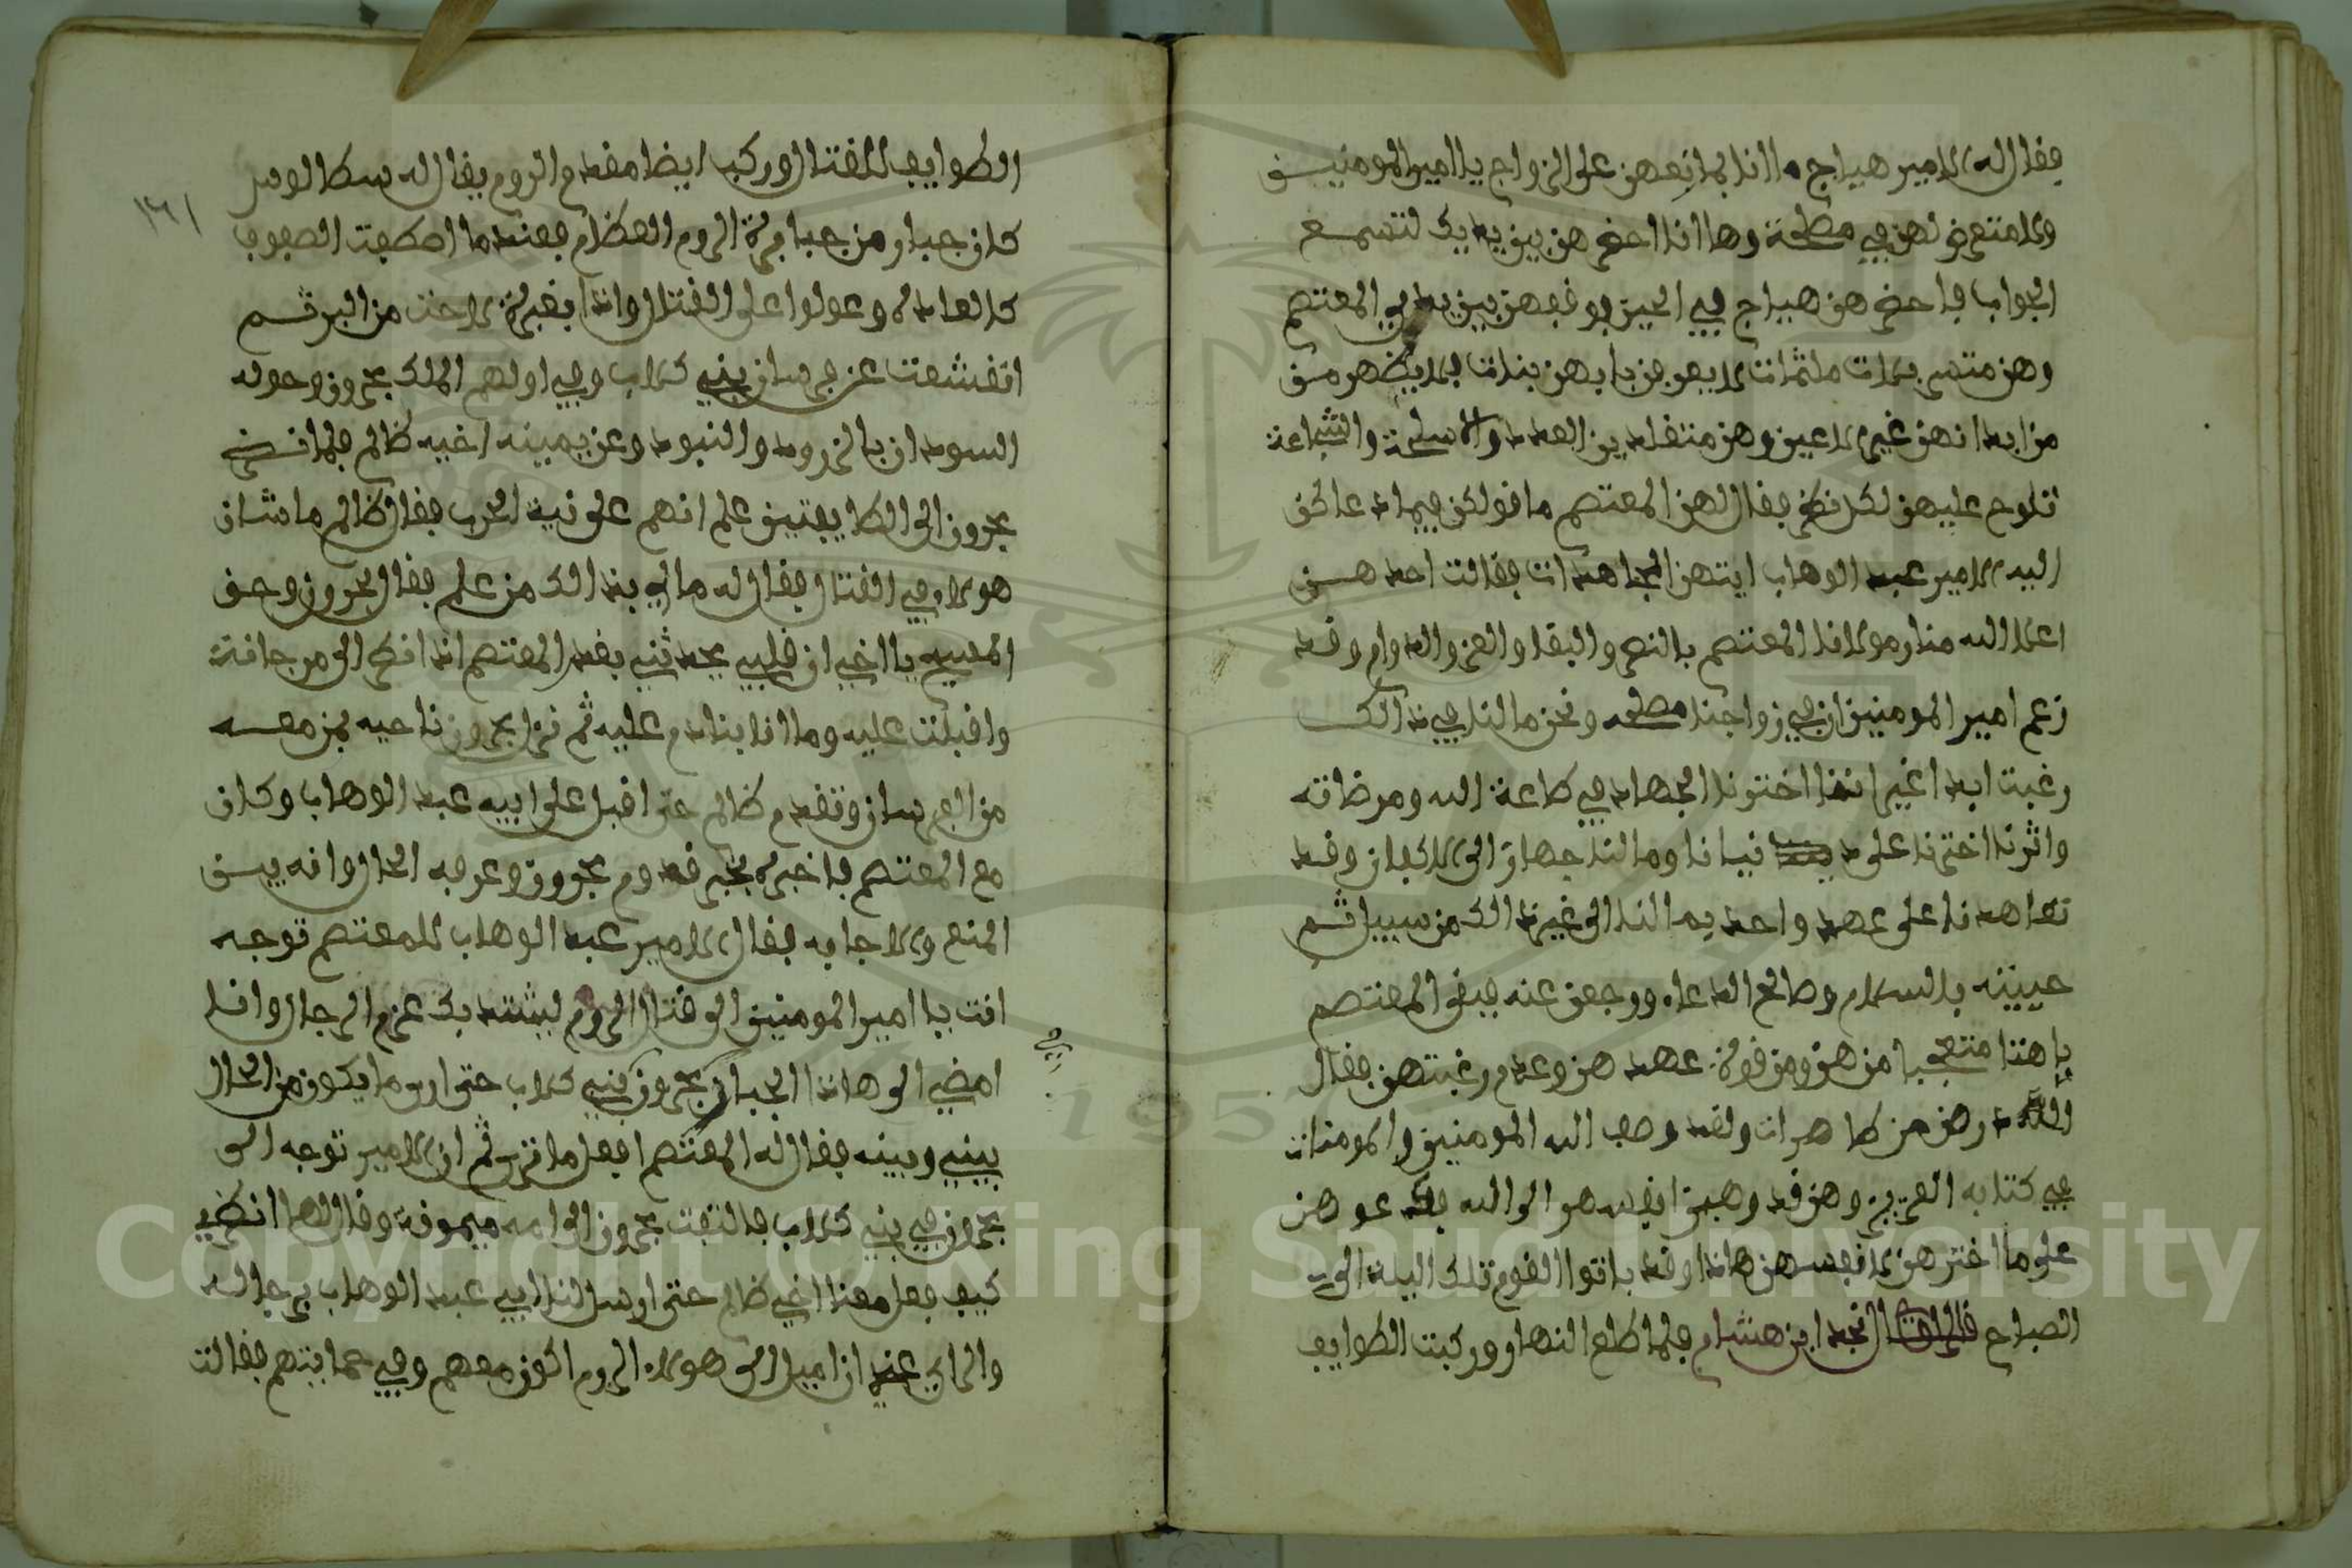 فقال له الامير هياج ما انا بمانعهن على الزواج يا امير المومنين
ولا متعرض لهن في مصلحة وها انا احضرهن بين يديك لتسمع
الجواب فاحضرهن هياج في الحين فوقفهن بين يدي المعتصم
وهن متسربلات ملثمات لا يعرفن بانهن بنات لا يظهر من
من ابدانهن غير الاعين وهن متقلدين العدد والاسلحة والشجاعة
تلوح عليهن لكل نظر فقال لهن المعتصم ما قولكن فيما دعاكن
اليه الامير عبد الوهاب ايتهن المجاهدات فقالت احدهن
اعلا الله منار مولانا المعتصم بالنصر والبقا والعز والدوام وقد
زعم امير المومنين ان في زواجنا مصلحه ونحن مالنا في ذالك
رغبت ابدا غير اننا اختونا الجهاد في طاعة الله ومرضاته
واثرنا اخترنا على نيانا وما لنا جهاز الى الاكفان وقد
تعاهدنا على عهد واحد فما لنا الى غير ذالك من سبيل ثم
حيينه بالسلام وصالح الدعاء ورجعن عنه فبقى المعتصم
باهتا متعجبا من هن ومن قوة عهدهن وعدم رغبتهن فقال
لله درهن من طاهرات ولقد وصف الله المومنين والمومنات
في كتابه العزيز وهن قد وهبن انفسهن الى الله فدعوهن
على ما اخترهن لانفسهن هاذا وقد باتوا القوم تلك اليلة الى
الصباح قال نجد ابن هشام فلما طلع النهار وركبت الطوايف
الطوايف للقتال وركب ايضا مقدم الروم يقال له
١٦١
كان جبار من جبابرة الروم العظام فعندما اصطفت الصفوف
كالعادة وعولوا على القتال واذا بغبرة لاحت من البر ثم
انقشعت عن فرسان بني كلاب وفي اولهم الملك بحرون وحوله
السودان بالزرود والنبود وعن يمينه اخيه ظالم فلما نظر
بحرون الى الطايفتين علم انهم على نية الحرب فقال ظالم ما شان
هولاء في القتال فقال له مالي بذالك من علم فقال بحرون وحق
المسيح يا اخي ان قلبي يحدثني بغدر المعتصم اذا نظر الى مرجانة
واقبلت عليه وما انا بنادم عليه ثم نزل بحرون ناحيه بمن معه
من الفرسان وتقدم ظالم حتى اقبل على ابيه عبد الوهاب وكان
مع المعتصم فاخبره بخبر قدوم بحرون وعرفه الحال وانه بين
المنع والاجابه فقال الامير عبد الوهاب للمعتصم توجه
انت يا امير المومنين الى قتال الروم ليشتد بك عزم الرجال وانا
امضي الى هاذا الجبار بحرون في بني كلاب حتى ارى ما يكون من الحال
بيني وبينه فقال له المعتصم افعل ما ترى ثم ان الامير توجه الى
بحرون في بني كلاب فالتفت بحرون الى امه ميمونة وقال لها انظري
كيف فعل معنا اخي ظالم حتى ارسل لنا ابي عبد الوهاب برجاله
والراي عندي ان اميل الى هولاء الروم اكون معهم وفي حمايتهم فقالت